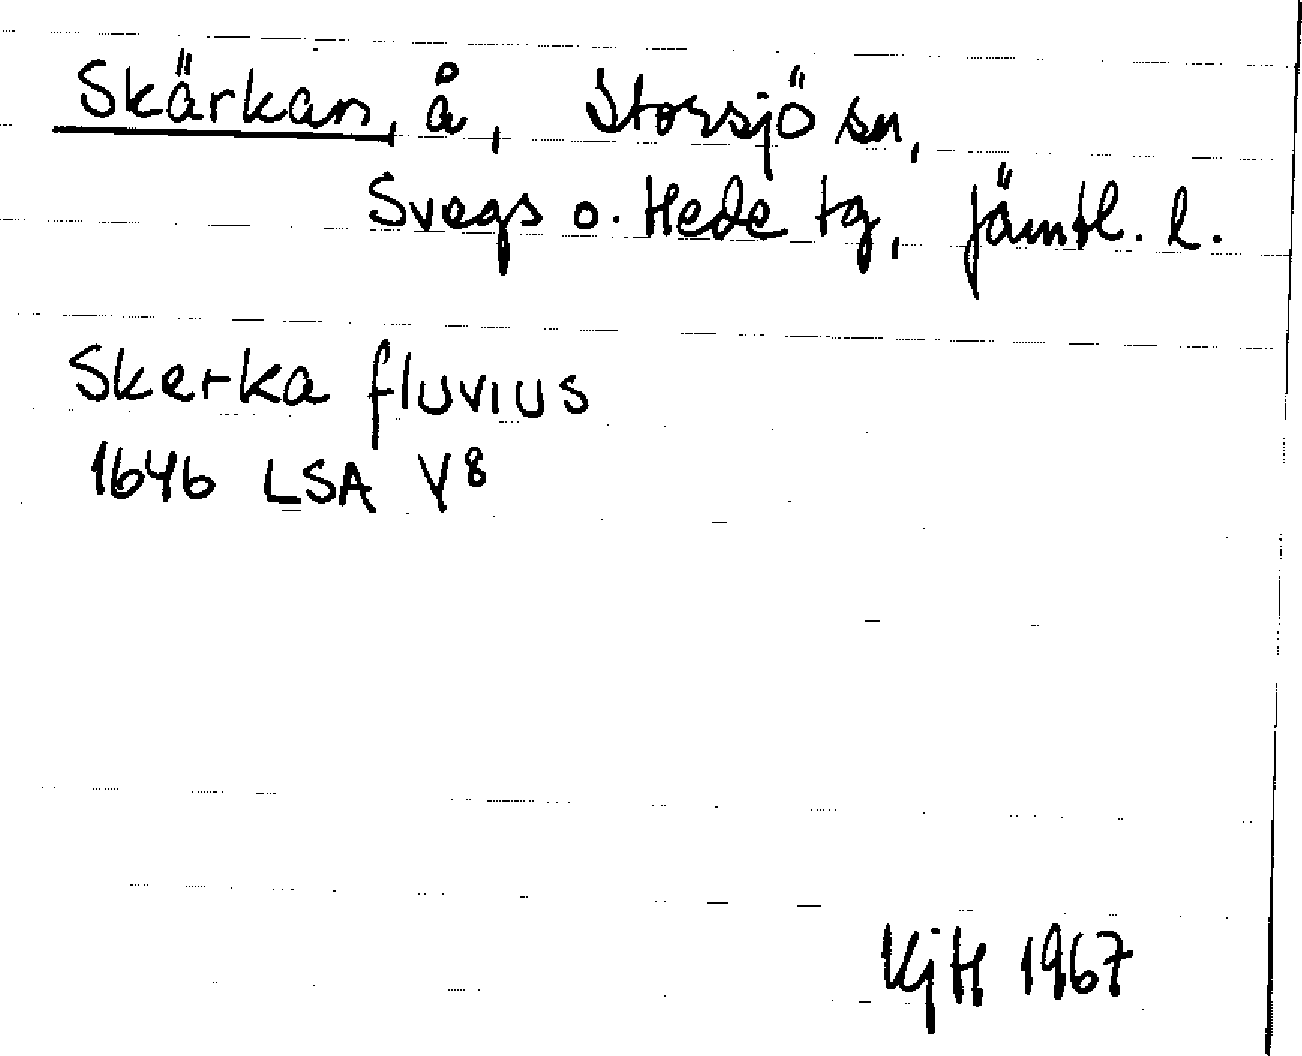 Skärkan, å, Storsjö sn,
Svegs o. Hede tg, Jämtl. l.
Skerka fluvius
1646 LSA Y8
KjH 1967